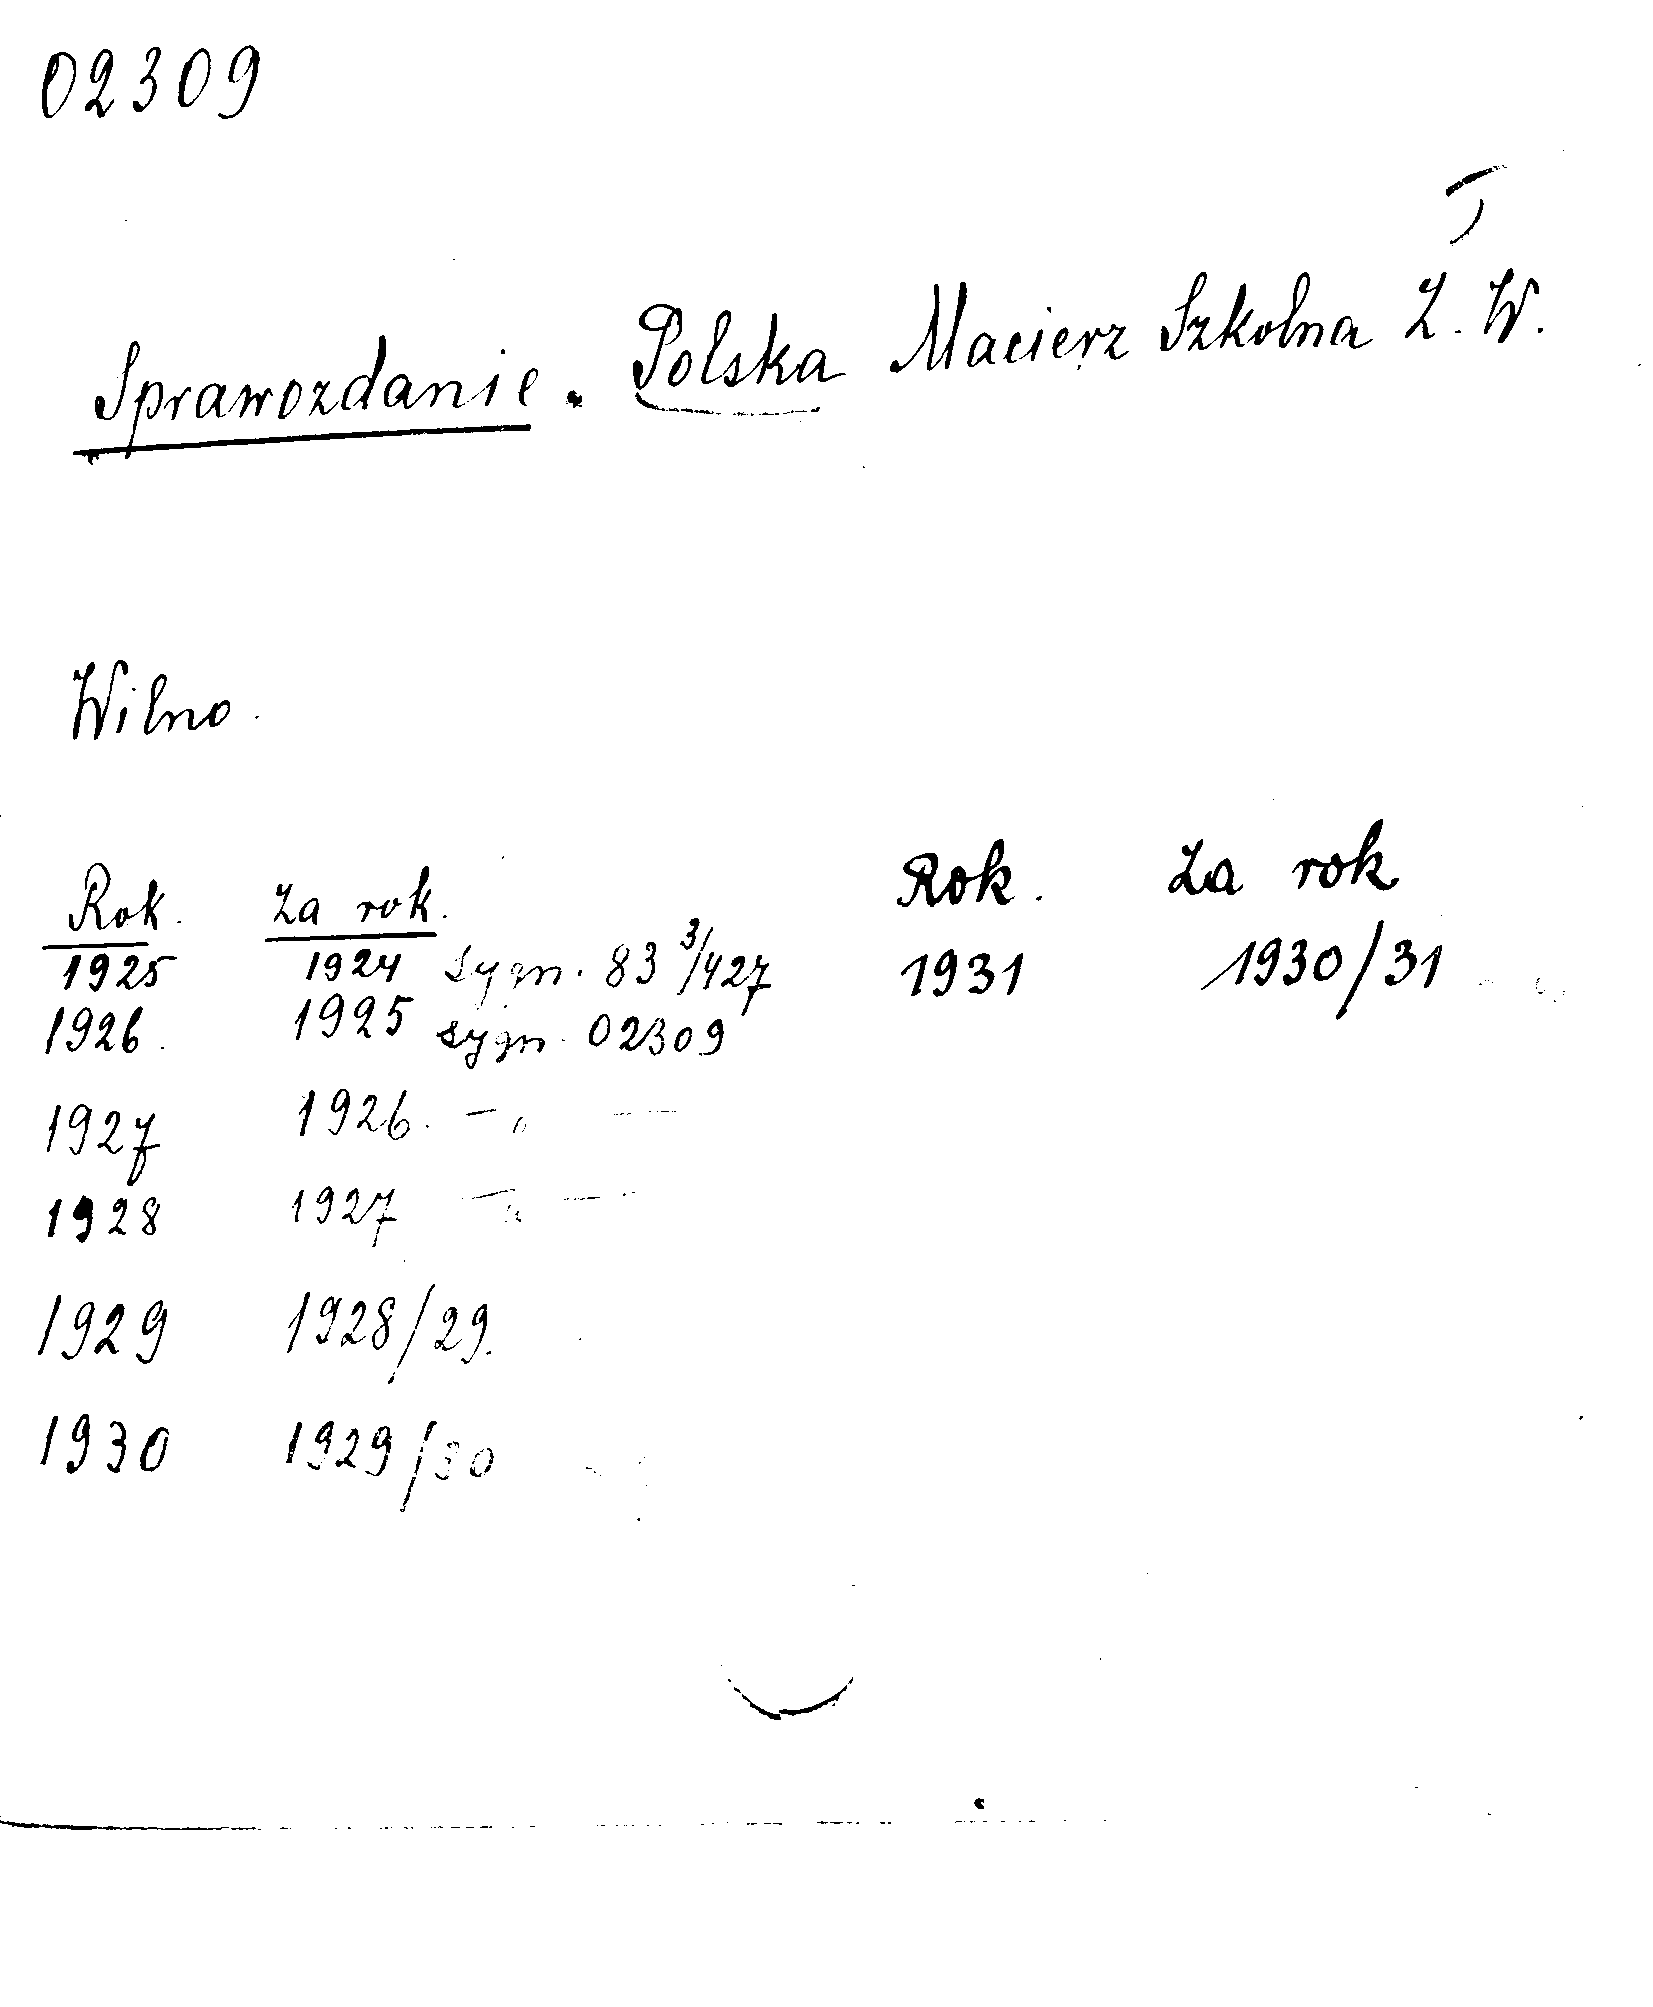 02309
Sprawozdanie. Polska Macierz Szkolna Z. W.
Wilno.
Rok. Za rok. Rok. Za rok
1925 1924 sygn. 83 3/427 1931 1930/31
1926. 1925 sygn. 02309
1927 1926. — „ —
1928 1927 — „ —
1929 1928/29.
1930 1929/30